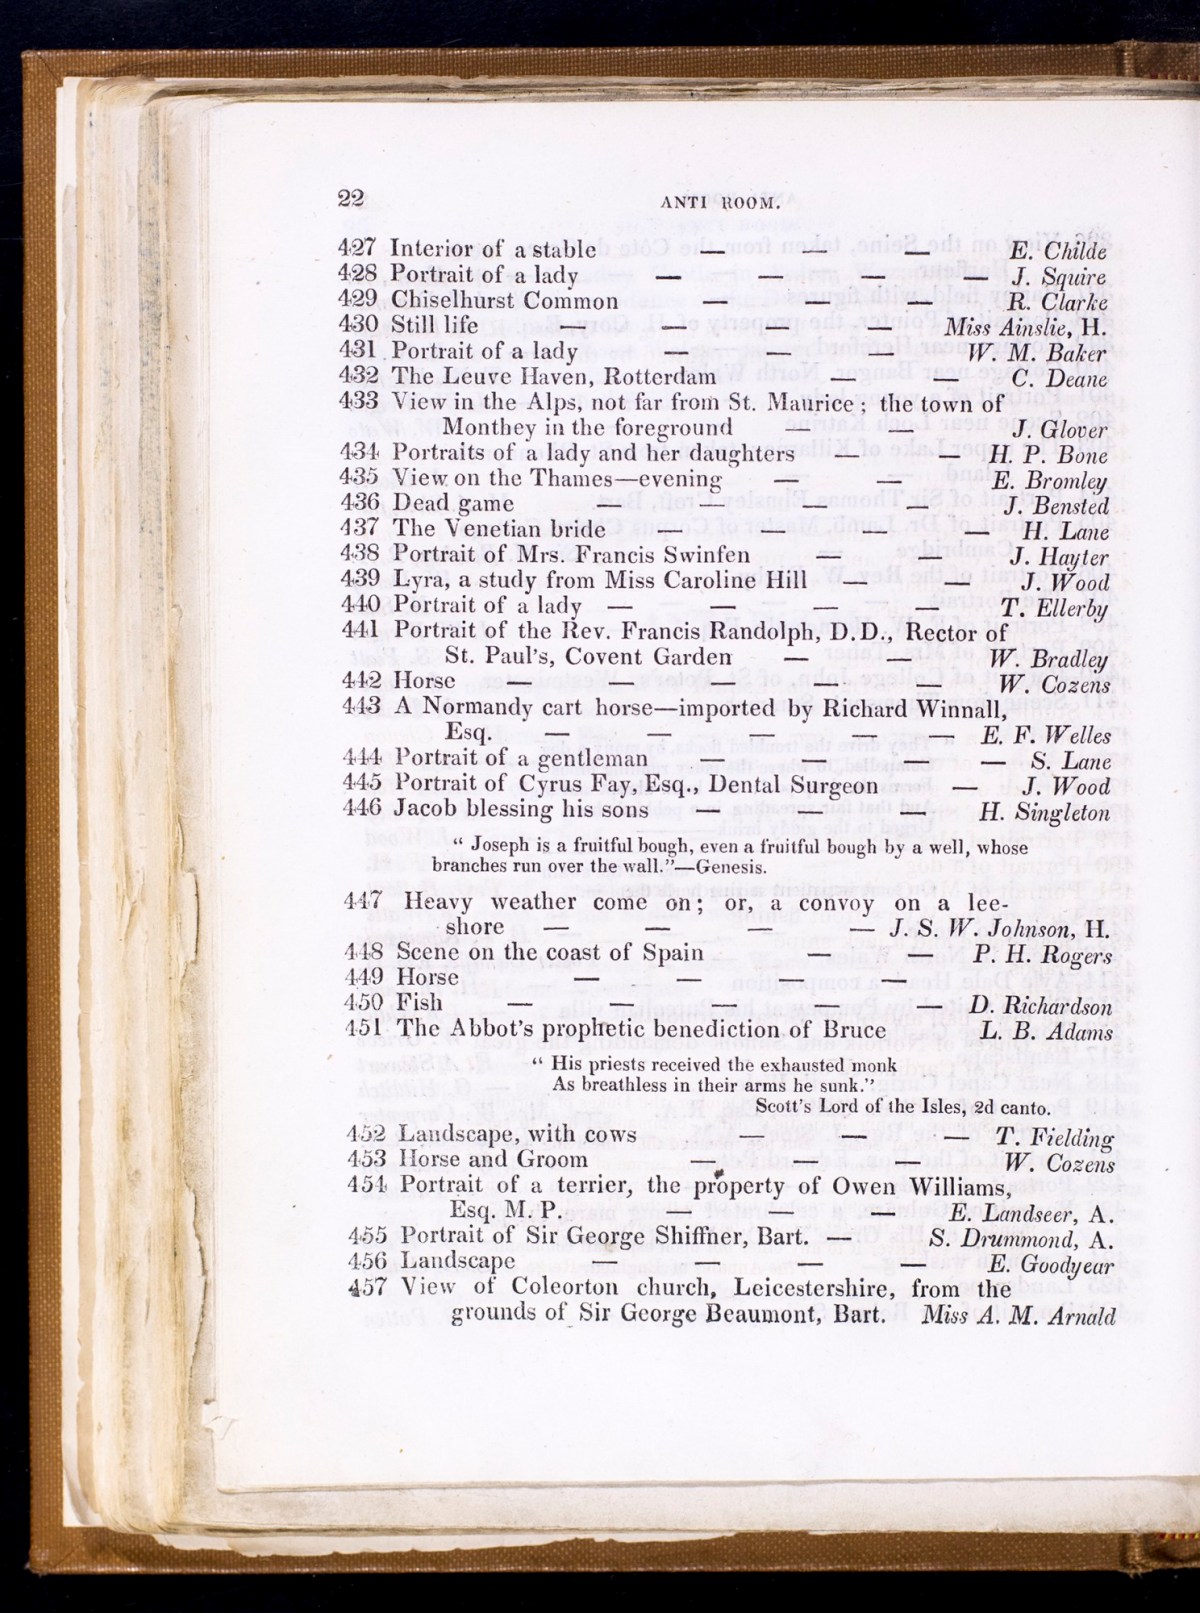 22 ANTI ROOM.
427 Interior of a stable — — — E. Childe
428 Portrait of a lady — — — — J. Squire
429 Chiselhurst Common — — R. Clarke
430 Still life — — — — Miss Ainslie, H.
431 Portrait of a lady — — — W. M. Baker
432 The Leuve Haven, Rotterdam — — C. Deane
433 View in the Alps, not far from St. Maurice; the town of
Monthey in the foreground — J. Glover
434 Portraits of a lady and her daughters — — H. P. Bone
435 View on the Thames—evening — — E. Bromley
436 Dead game — — — — J. Bensted
437 The Venetian bride — — — — H. Lane
438 Portrait of Mrs. Francis Swinfen — — J. Hayter
439 Lyra, a study from Miss Caroline Hill — — J. Wood
440 Portrait of a lady — — — — T. Ellerby
441 Portrait of the Rev. Francis Randolph, D.D., Rector of
St. Paul's, Covent Garden — — W. Bradley
442 Horse — — — — — W. Cozens
443 A Normandy cart horse—imported by Richard Winnall,
Esq. — — — — — E. F. Welles
444 Portrait of a gentleman — — — — S. Lane
445 Portrait of Cyrus Fay, Esq., Dental Surgeon — J. Wood
446 Jacob blessing his sons — — — H. Singleton
“ Joseph is a fruitful bough, even a fruitful bough by a well, whose
branches run over the wall.”—Genesis.
447 Heavy weather come on; or, a convoy on a lee-
shore — — — — J. S. W. Johnson, H.
448 Scene on the coast of Spain — — P. H. Rogers
449 Horse — — — — —
450 Fish — — — — — D. Richardson
451 The Abbot's prophetic benediction of Bruce L. B. Adams
“ His priests received the exhausted monk
As breathless in their arms he sunk.”
Scott's Lord of the Isles, 2d canto.
452 Landscape, with cows — — — T. Fielding
453 Horse and Groom — — — W. Cozens
454 Portrait of a terrier, the property of Owen Williams,
Esq. M. P. — — — — E. Landseer, A.
455 Portrait of Sir George Shiffner, Bart. — S. Drummond, A.
456 Landscape — — — — E. Goodyear
457 View of Coleorton church, Leicestershire, from the
grounds of Sir George Beaumont, Bart. Miss A. M. Arnald